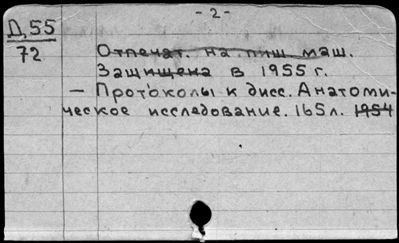 - 2 -
Д, 55
72
Отпечат. на пиш. маш.
Защищена в 1955 г.
— Протоколы к дисс. Анатоми-
ческое исследование. 165 л. 1954